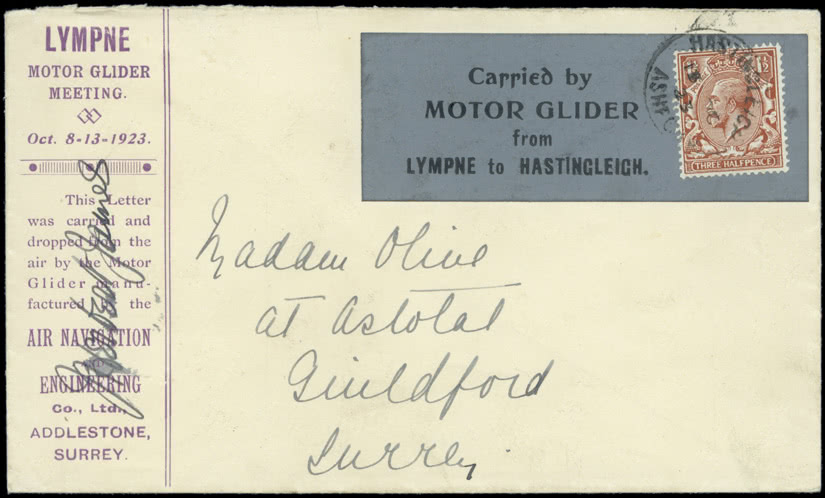 LYMPNE
MOTOR GLIDER
MEETING.
Oct. 8-13-1923.
This Letter
was carried and
dropped from the
air by the Motor
Glider manu-
factured by the
AIR NAVIGATION
ENGINEERING
Co., Ltd.,
ADDLESTONE,
SURREY.
Carried by
MOTOR GLIDER
from
LYMPNE to HASTINGLEIGH.
1½
THREE HALFPENCE
Madam Olive
at Astolat
Guildford
Surrey